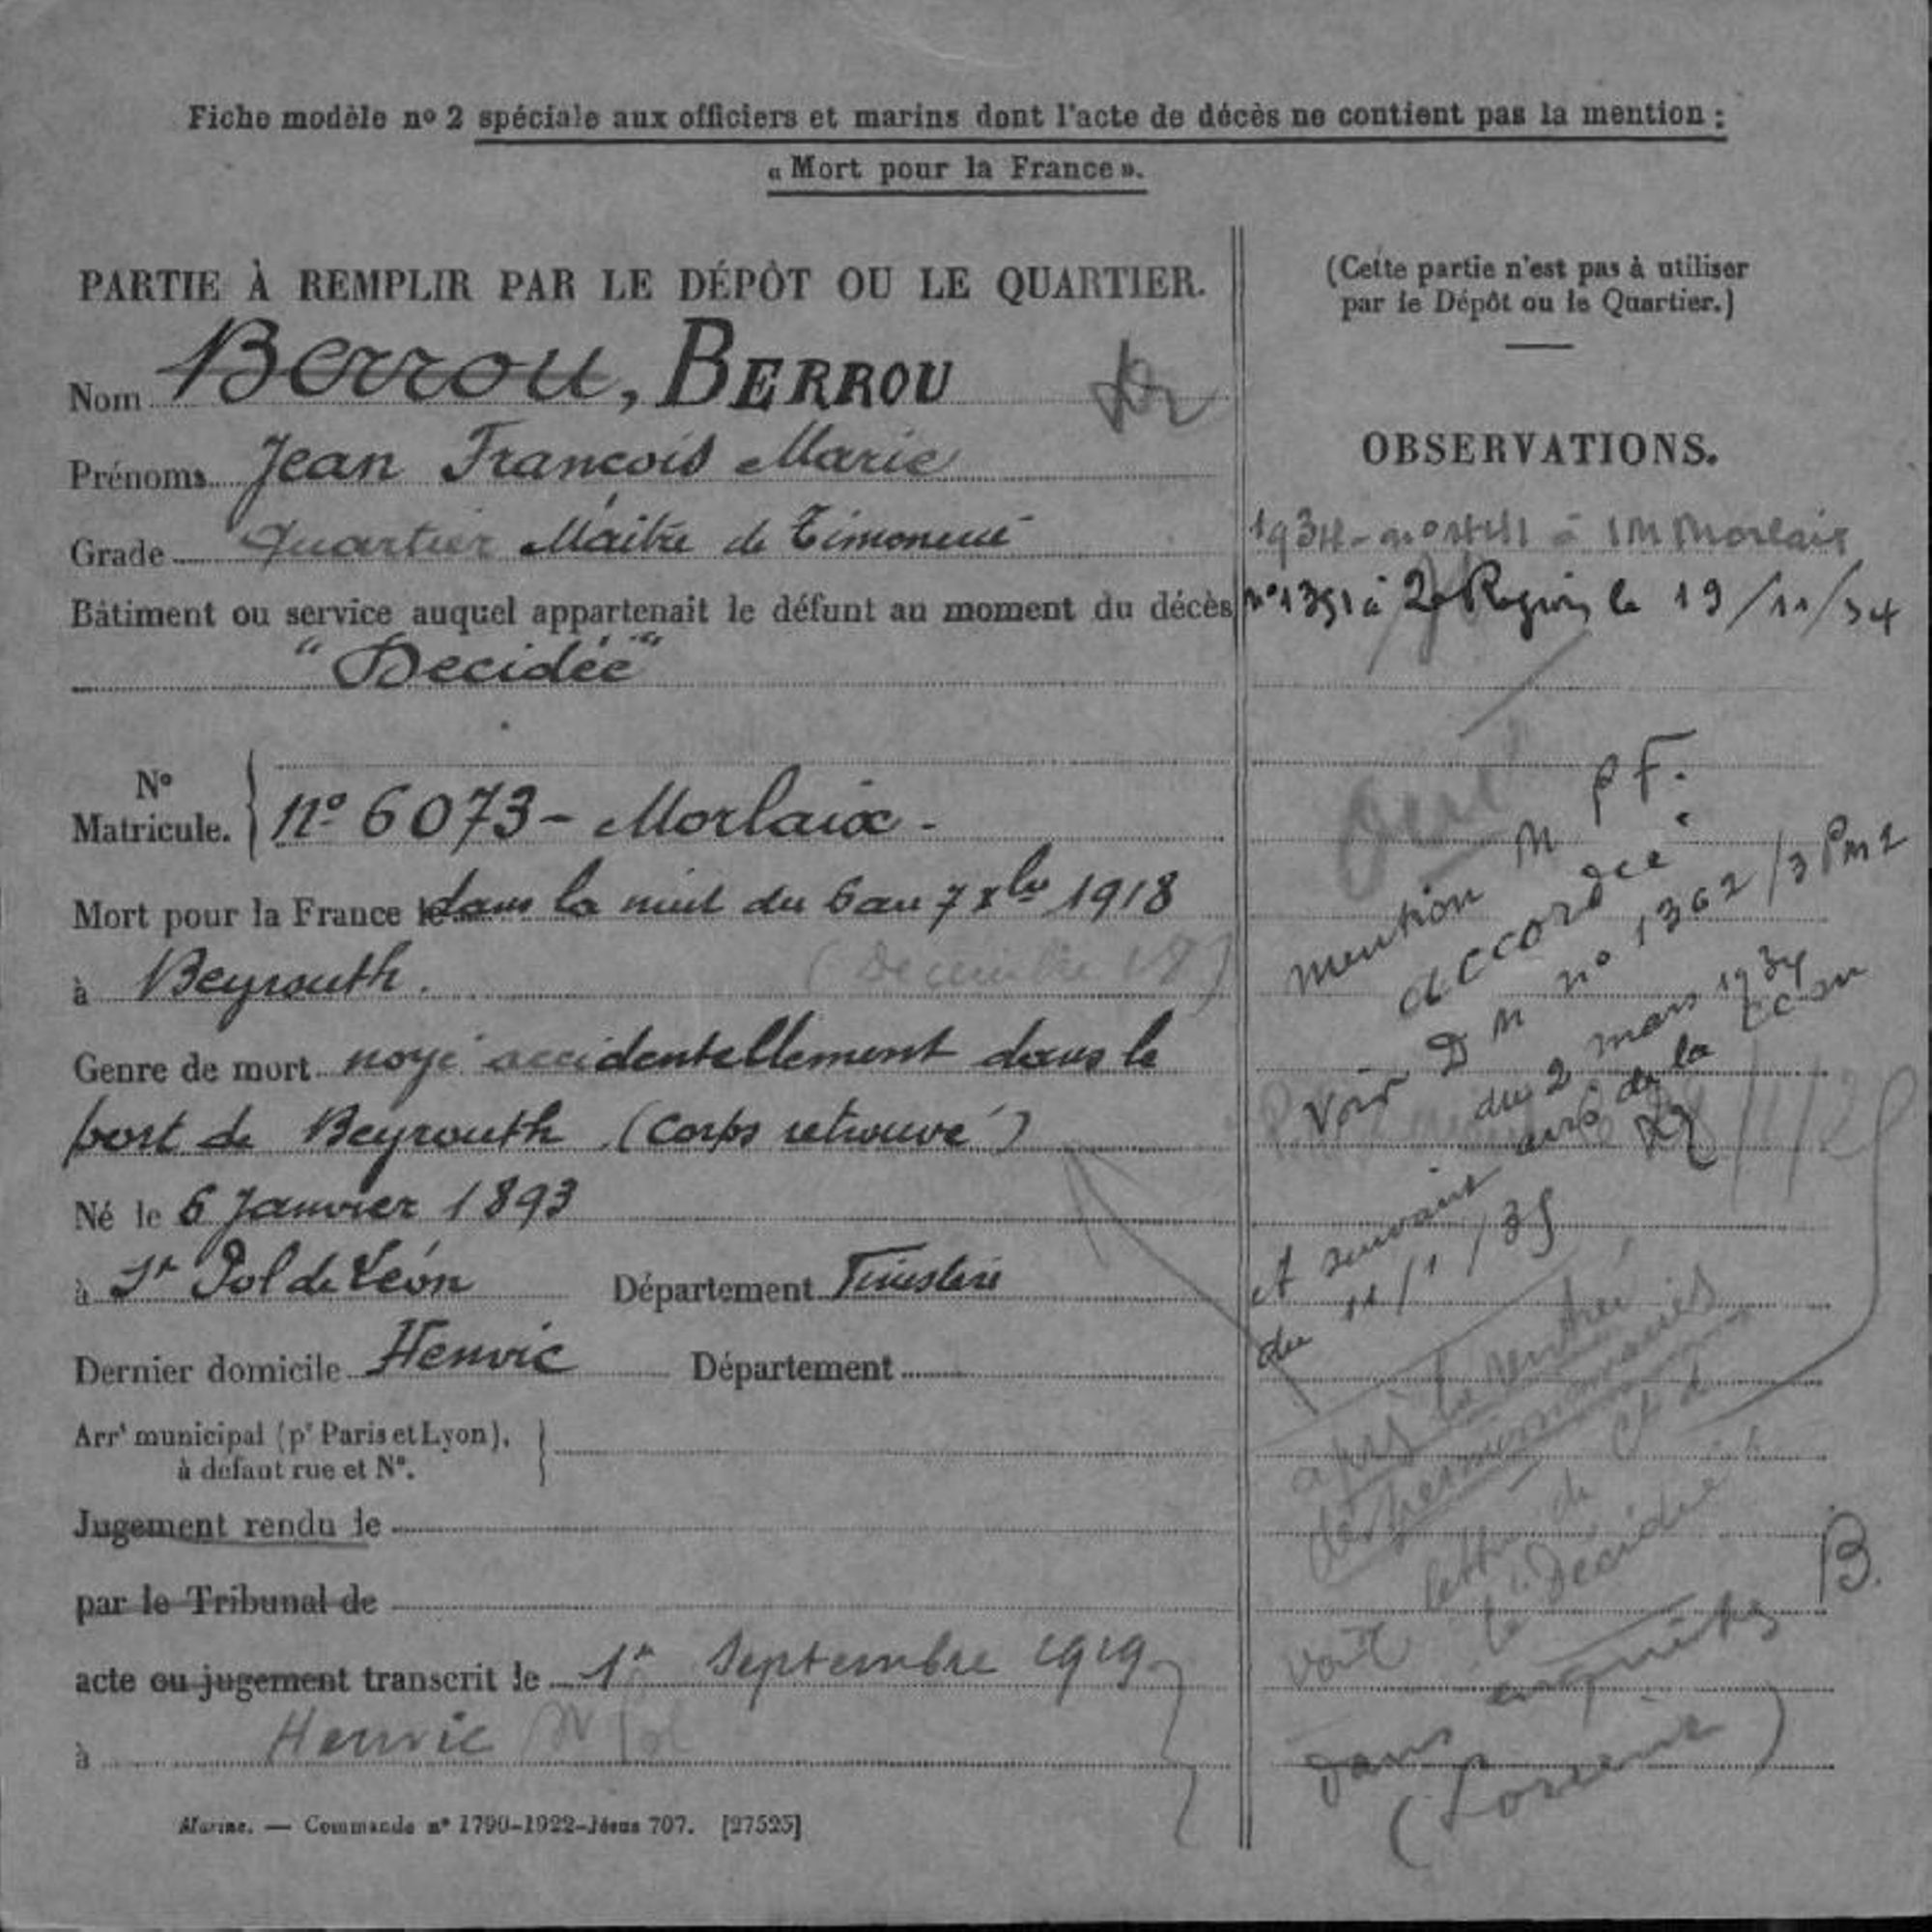 Fiche modèle n° 2 spéciale aux officiers et marins dont l'acte de décès ne contient pas la mention :
« Mort pour la France ».
PARTIE À REMPLIR PAR LE DÉPÔT OU LE QUARTIER.
Nom Berrou, BERROU
Prénoms Jean François Marie
Grade Quartier Maître de Timonerie
Bâtiment ou service auquel appartenait le défunt au moment du décès
"Decidée"
N° Matricule. n° 6073 - Morlaix -
Mort pour la France le dans la nuit du 6 au 7 xbre 1918
à Beyrouth. (Decembre 18)
Genre de mort noyé accidentellement dans le
port de Beyrouth (Corps retrouvé)
Né le 6 Janvier 1893
à St Pol de Léon Département Finistère
Dernier domicile Henvic Département
Arrt municipal (pr Paris et Lyon),
à défaut rue et N°.
Jugement rendu le
par le Tribunal de
acte ou jugement transcrit le 1er Septembre 1919
à Henvic
Marine. — Commande n° 1790-1922-Jésus 707. [27525]
(Cette partie n'est pas à utiliser
par le Dépôt ou le Quartier.)
OBSERVATIONS.
1934 - n° à IM Morlaix
n° 1351 à 2e Région le 19/11/34
mention M P F.
accordée
Voir D M n° 1362/3 PM2
du 2 mars 1934
et suivant avis de la
du 11/1/35
après la rentrée
des permissionnaires
voir lettre de
la Décidée
dans enquêtes
(Lorient)
B.